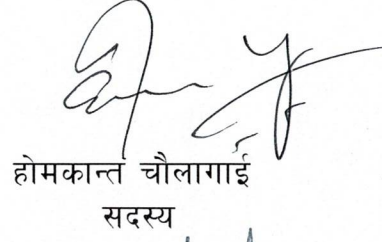 होमकान्त चौलागाई
सदस्य